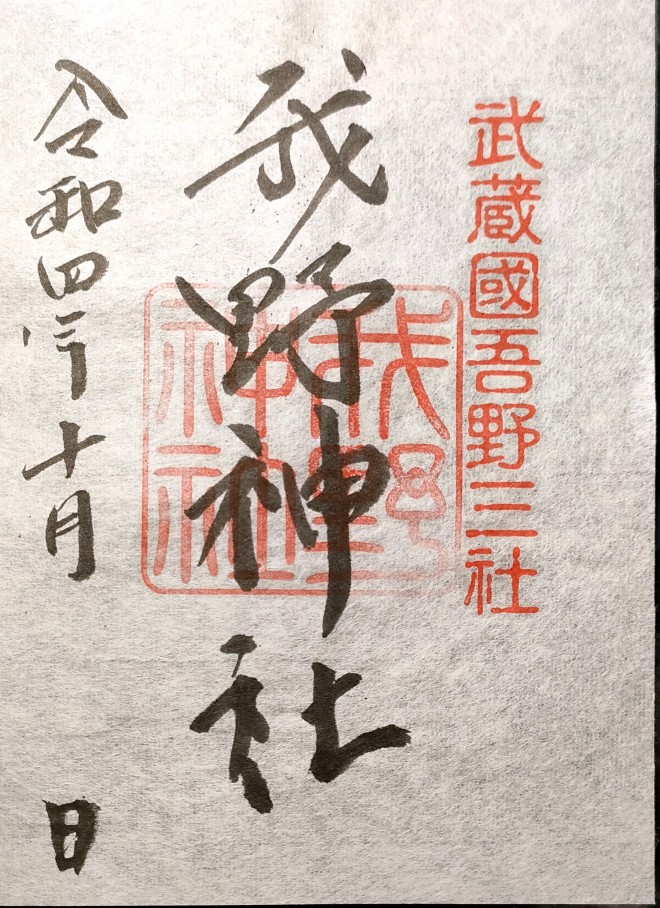 武蔵國吾野三社
我野神社
我野神社
令和四年十月 日